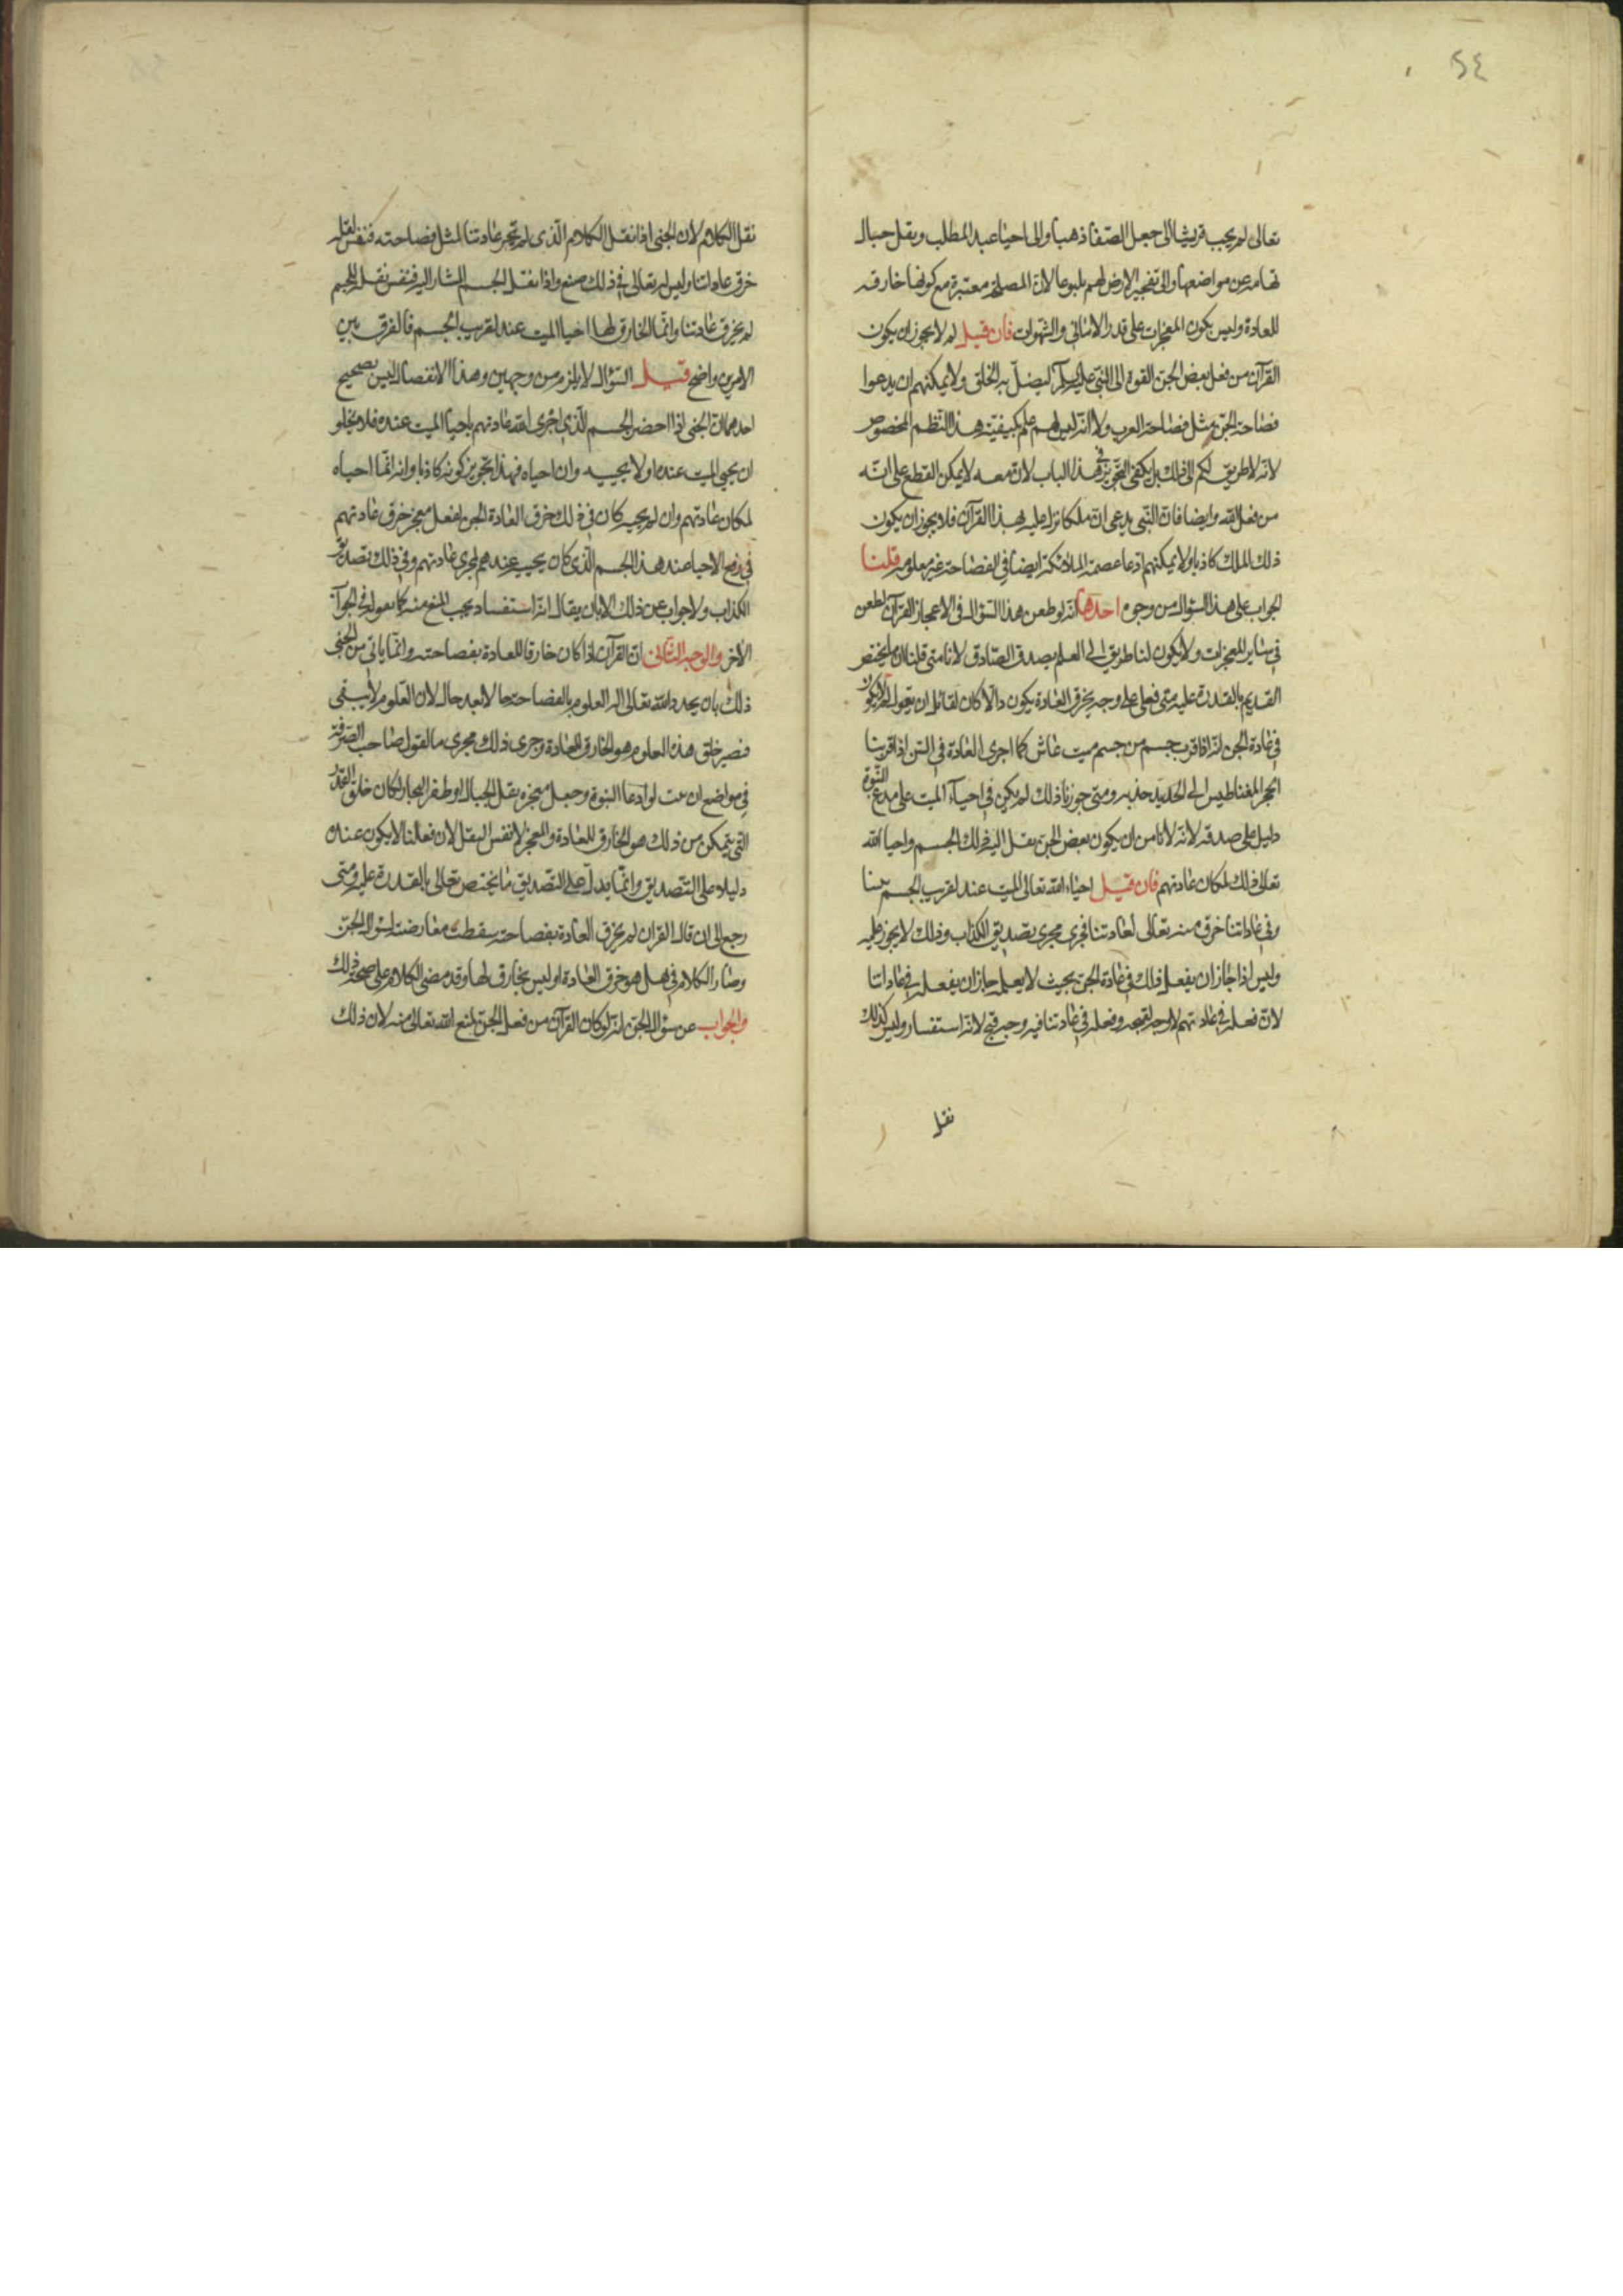 ٥٤
تعالى لم يجب قريشا الى جعل الصفا ذهبا والى احيا عبد المطلب ونقل جبال
تهامه عن مواضعها والى تفجير الارض لهم ينبوعا لان المصلحة معتبرة مع كونها خارقه
للعادة وليس يكون المعجزات على قدر الامانى والشهوات فان قيل لم لا يجوز ان يكون
القرآن من فعل بعض الجن القوه الى النبى عليه السلم ليضل به الخلق ولا يمكنهم ان يدعوا
فصاحة الجن مثل فصاحة العرب ولا انه ليس لهم علم بكيفية هذا النظم المخصوص
لانه لا طريق لكم الى ذلك بل يكفى التجويز فى هذا الباب لان معه لا يمكن القطع على انه
من فعل الله وايضا فان النبى يدعى ان ملكا نزل عليه بهذا القرآن فلا يجوز ان يكون
ذلك الملك كاذبا ولا يمكنهم ادعا عصمة الملائكة ايضا فى الفصاحة غير معلوم قلنا
الجواب على هذا السؤال من وجوه احدها انه لو طعن هذا السؤال فى الاعجاز القرآن لطعن
فى سائر المعجزات ولا يكون لنا طريق الى العلم بصدق الصادق لانا متى قلنا ان ما يختص
القديم بالقدرة عليه متى فعل على وجه يخرق العادة يكون دالا كان لقائل ان يقول لم لا يكون
فى عادة الجن انه اذا قرب جسم من جسم ميت عاش كما اجرى العادة فى الس اذا قربنا
الحجر المغناطيس الى الحديد جذبه ومتى جوزنا ذلك لم يكن فى احيآء الميت على مدعى النبوة
دليل على صدقه لانه لا نامن ان يكون بعض الجن نقل اليه ذلك الجسم واحيا الله
تعالى ذلك لمكان عادتهم فان قيل احياء الله تعالى الميت عند تقريب الجسم بيننا
وفى عاداتنا خرق منه تعالى لعادتنا فجرى مجرى تصديق الكذاب وذلك لا يجوز عليه
وليس اذا جاز ان يفعل ذلك فى عادة الجن بحيث لا يعلمه جاز ان يفعله فى عاداتنا
لان فعله فى عادتهم لا وجه لقبحه وفعله فى عادتنا فيه وجه قبح لانه استفساد وليس كذلك
نقل
نقل الكلام لان الجنى اذا نقل الكلام الذى لم تجر عادتنا لمثل فصاحته فنفس نقله
خرق عاداتنا وليس له تعالى فى ذلك صنع واذا نقل الجسم المشار اليه فنفس نقله للجسم
لم يخرق عادتنا وانما الخارق لها احيا الميت عند تقريب الجسم فالفرق بين
الامرين واضح قيل السؤال لا يلزم من وجهين وهذا الانفصال ليس بصحيح
احدهما ان الجنى اذا احضر الجسم الذى اجرى الله عادتهم باحيا الميت عنده فلا يخلو
ان يحيى الميت عنده او لا يحييه وان احياه فهذا تجويز كونه كاذبا وانه انما احياه
لمكان عادتهم وان لم يحيه كان فى ذلك خرق العادة الجن بفعل معجز خرق عادتهم
فى رفع الاحيا عند هذا الجسم الذى كان يحييه عندهم لمجرى عادتهم وفى ذلك تصديق
الكذاب ولا جواب عن ذلك الا بان يقال انه استفساد يجب المنع منه كما نقوله فى الجواب
الآخر والوجه الثانى ان القرآن اذا كان خارقا للعادة بفصاحته وانما ياتى من الجنى
ذلك بان يحدد الله تعالى له العلوم بالفصاحة حالا بعد حال لان العلوم لا يبقى
فنصير خلق هذه العلوم هو الخارق للعادة وجرى ذلك مجرى ما نقول صاحب الصرفة
فى مواضع ان من لو ادعا النبوة وجعل معجزه نقل الجبال او طفر البحار لكان خلق القدر
التى يتمكن من ذلك هو الخارق للعادة والمعجز لا نفس النقل لان فعلنا لا يكون عنده
دليلا على التصديق وانما يدل على التصديق ما يختص تعالى بالقدرة عليه ومتى
رجع الى ان قال القران لم يخرق العادة بفصاحته سقطت معارضته لسؤال الجن
وصار الكلام فى هل هو خرق العادة او ليس بخارق لها وقد مضى الكلام على صحة ذلك
والجواب عن سؤال الجن انه لو كان القرآن من فعل الجن لمنع الله تعالى منه لان ذلك